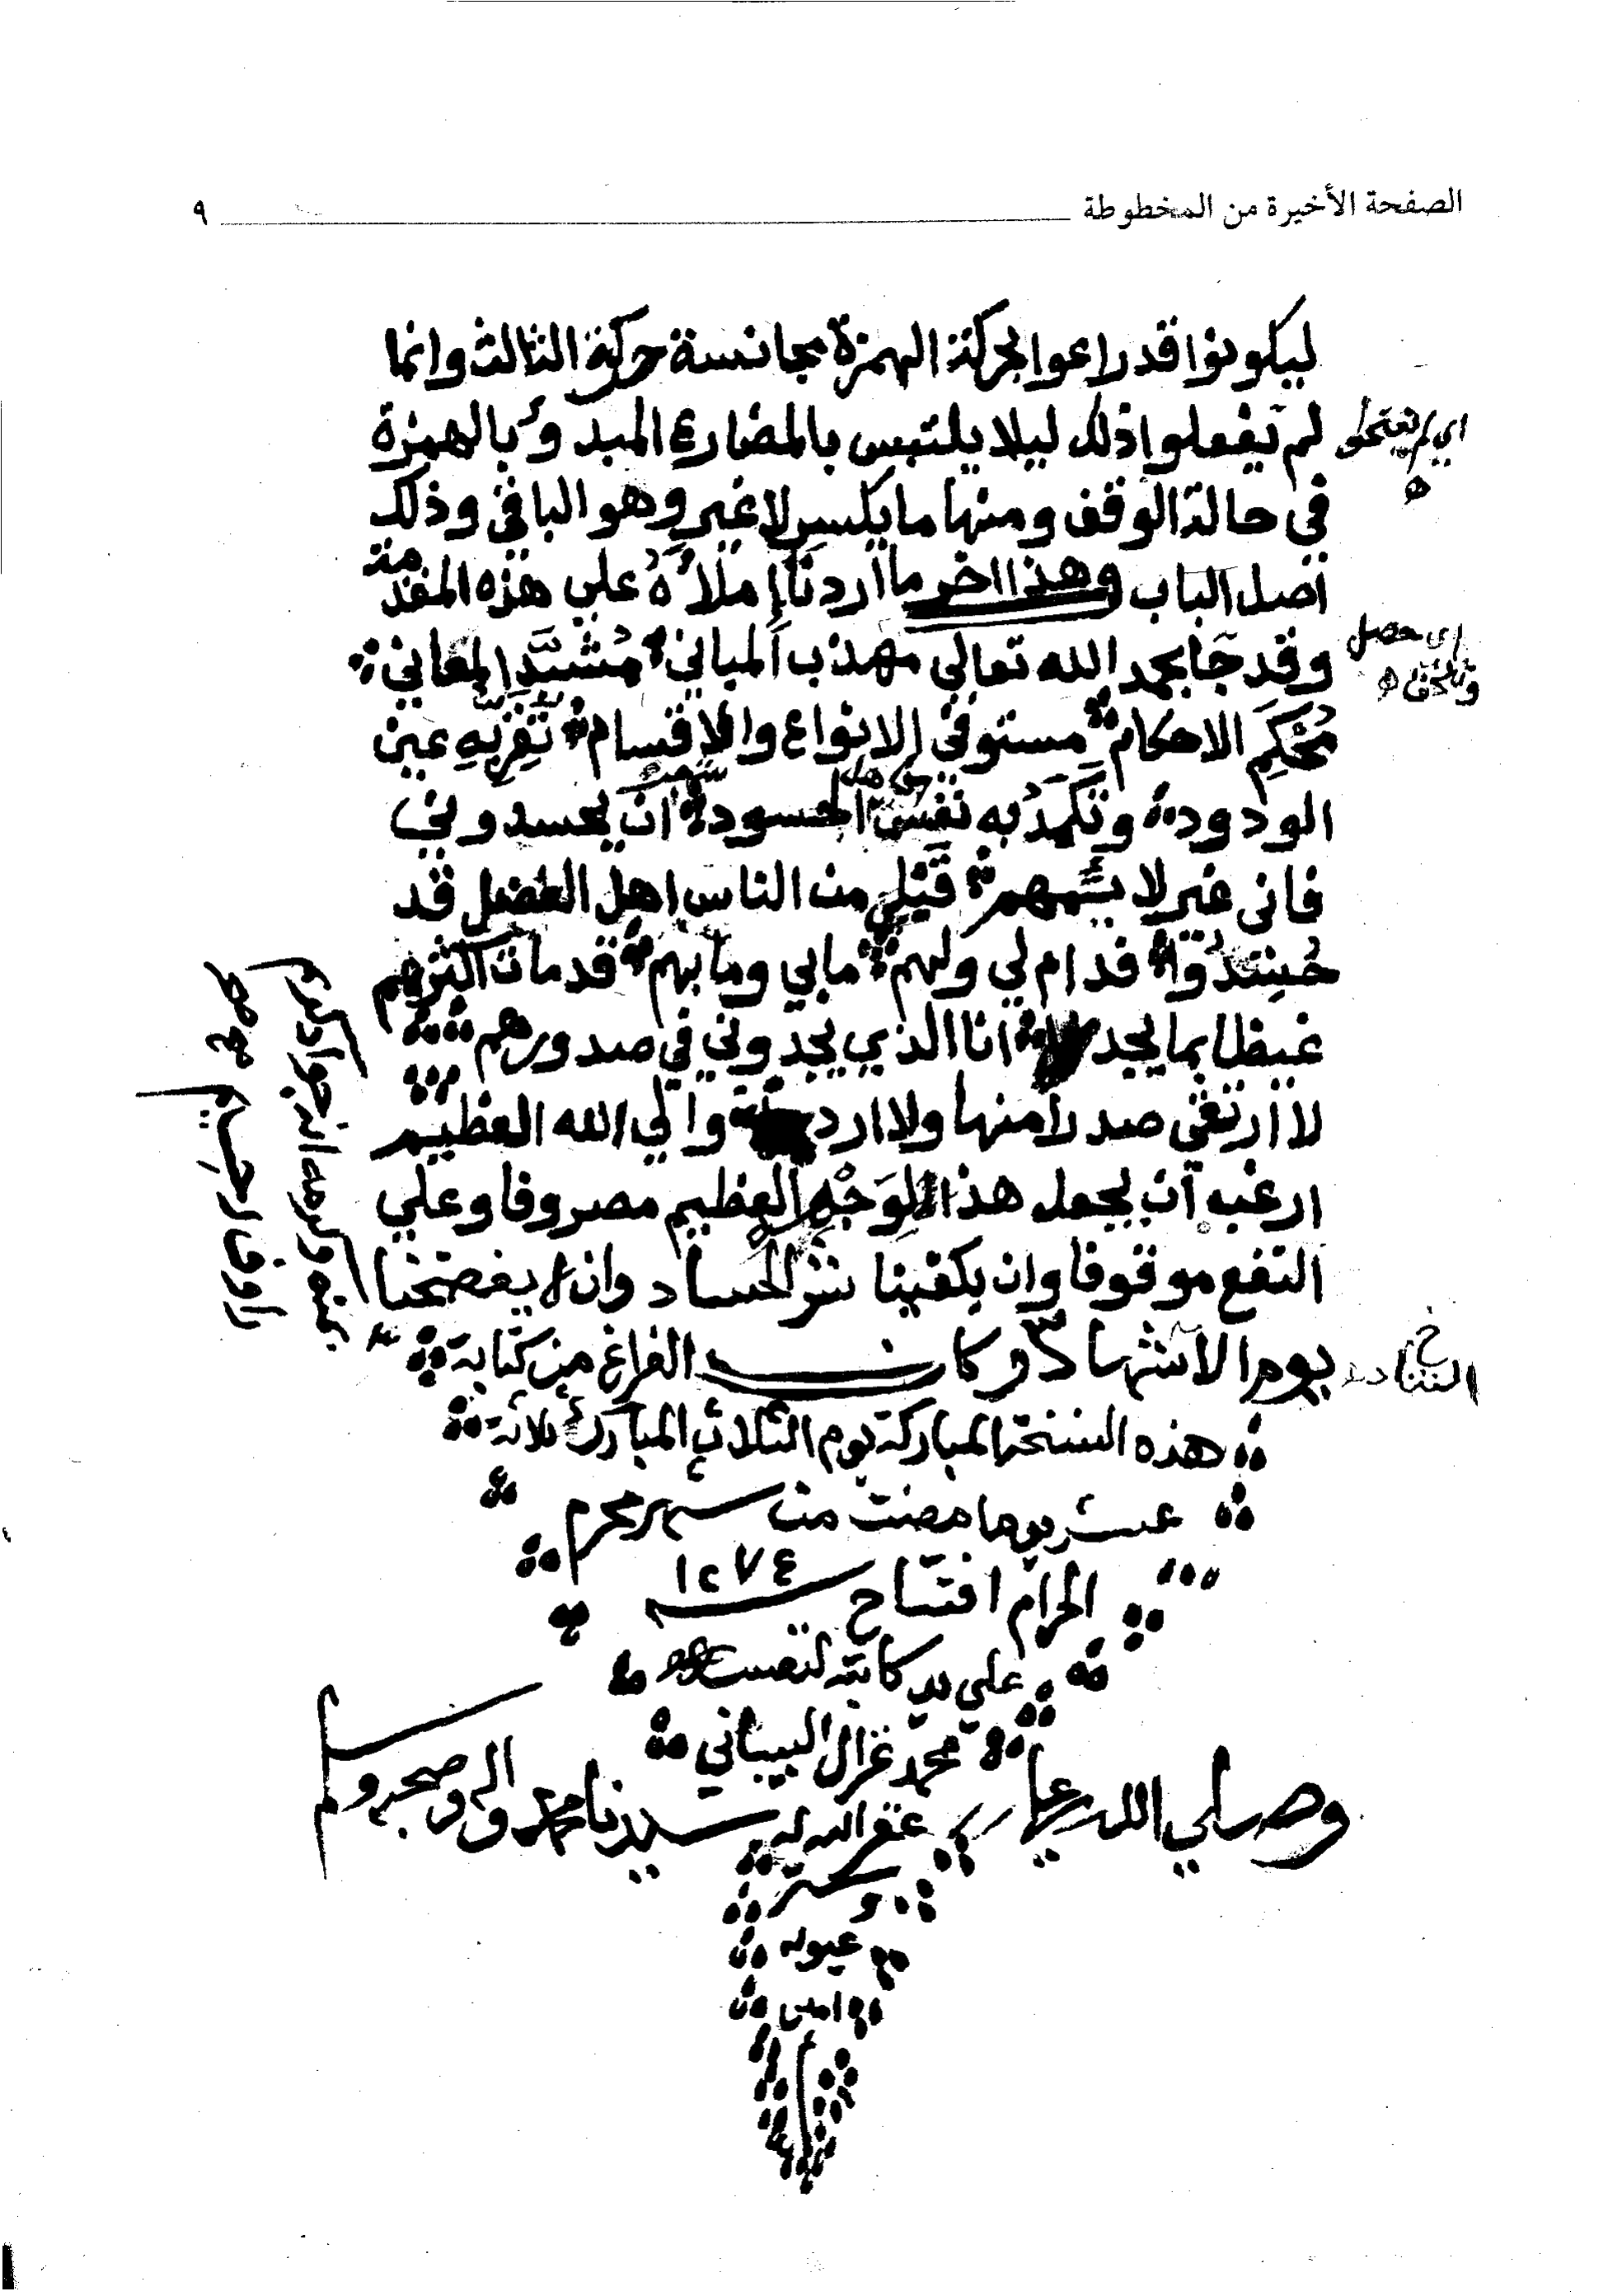 الصفحة الأخيرة من المخطوطة ٩
ليكونوا قد راعوا بحركة الهمزة مجانسة حركة الثالث وانما
لم يفعلوا ذلك ليلا يلتبس بالمضارع المبدوء بالهمزة
اي لم يفتحوا
في حالة الوقف ومنها ما يكسر لا غير وهو الباقي وذلك
اصل الباب وهذا اخر ما اردنا إملاءُهُ علي هذه المقدمة
وقد جَا بحمد الله تعالى مهذب المباني مُشَيَّد المعاني
اي حصل
مُحْكَم الاحكام مستوفى الانواع والاقسام تَقِرُّ بِهِ عين
الودود وتَكْمَدُ به نفس الحسود ان يحسدوني
فاني غير لايمهم قَبْلِي من الناس اهل الفضل قد
حُسِدُوا فدام لي ولهم ما بي وما بهم قد مات اكثرهم
غيظا بما يجد انا الذي يجدوني في صدورهم
لا ارتقي صدرا منها ولا ارد والي الله العظيم
ارغب ان يجعل هذا لِوَجْهِهِ العظيم مصروفا وعلي
النفع موقوفا وان يكفينا شر الحساد وان لا يفضحنا
يوم الاشهاد وكان الفراغ من كتابة
التناد
هذه النسخة المباركة يوم الثلاث المبارك ثلاثة
عشر يوما مضت من شهر محرم
الحرام افتتاح ١٢٧٤
علي يد كاتبه لنفسه
محمد غزال البيباني
غفر الله له
وصلي الله علي سيدنا محمد واله وصحبه وسلم
وستر
عيوبه
امين